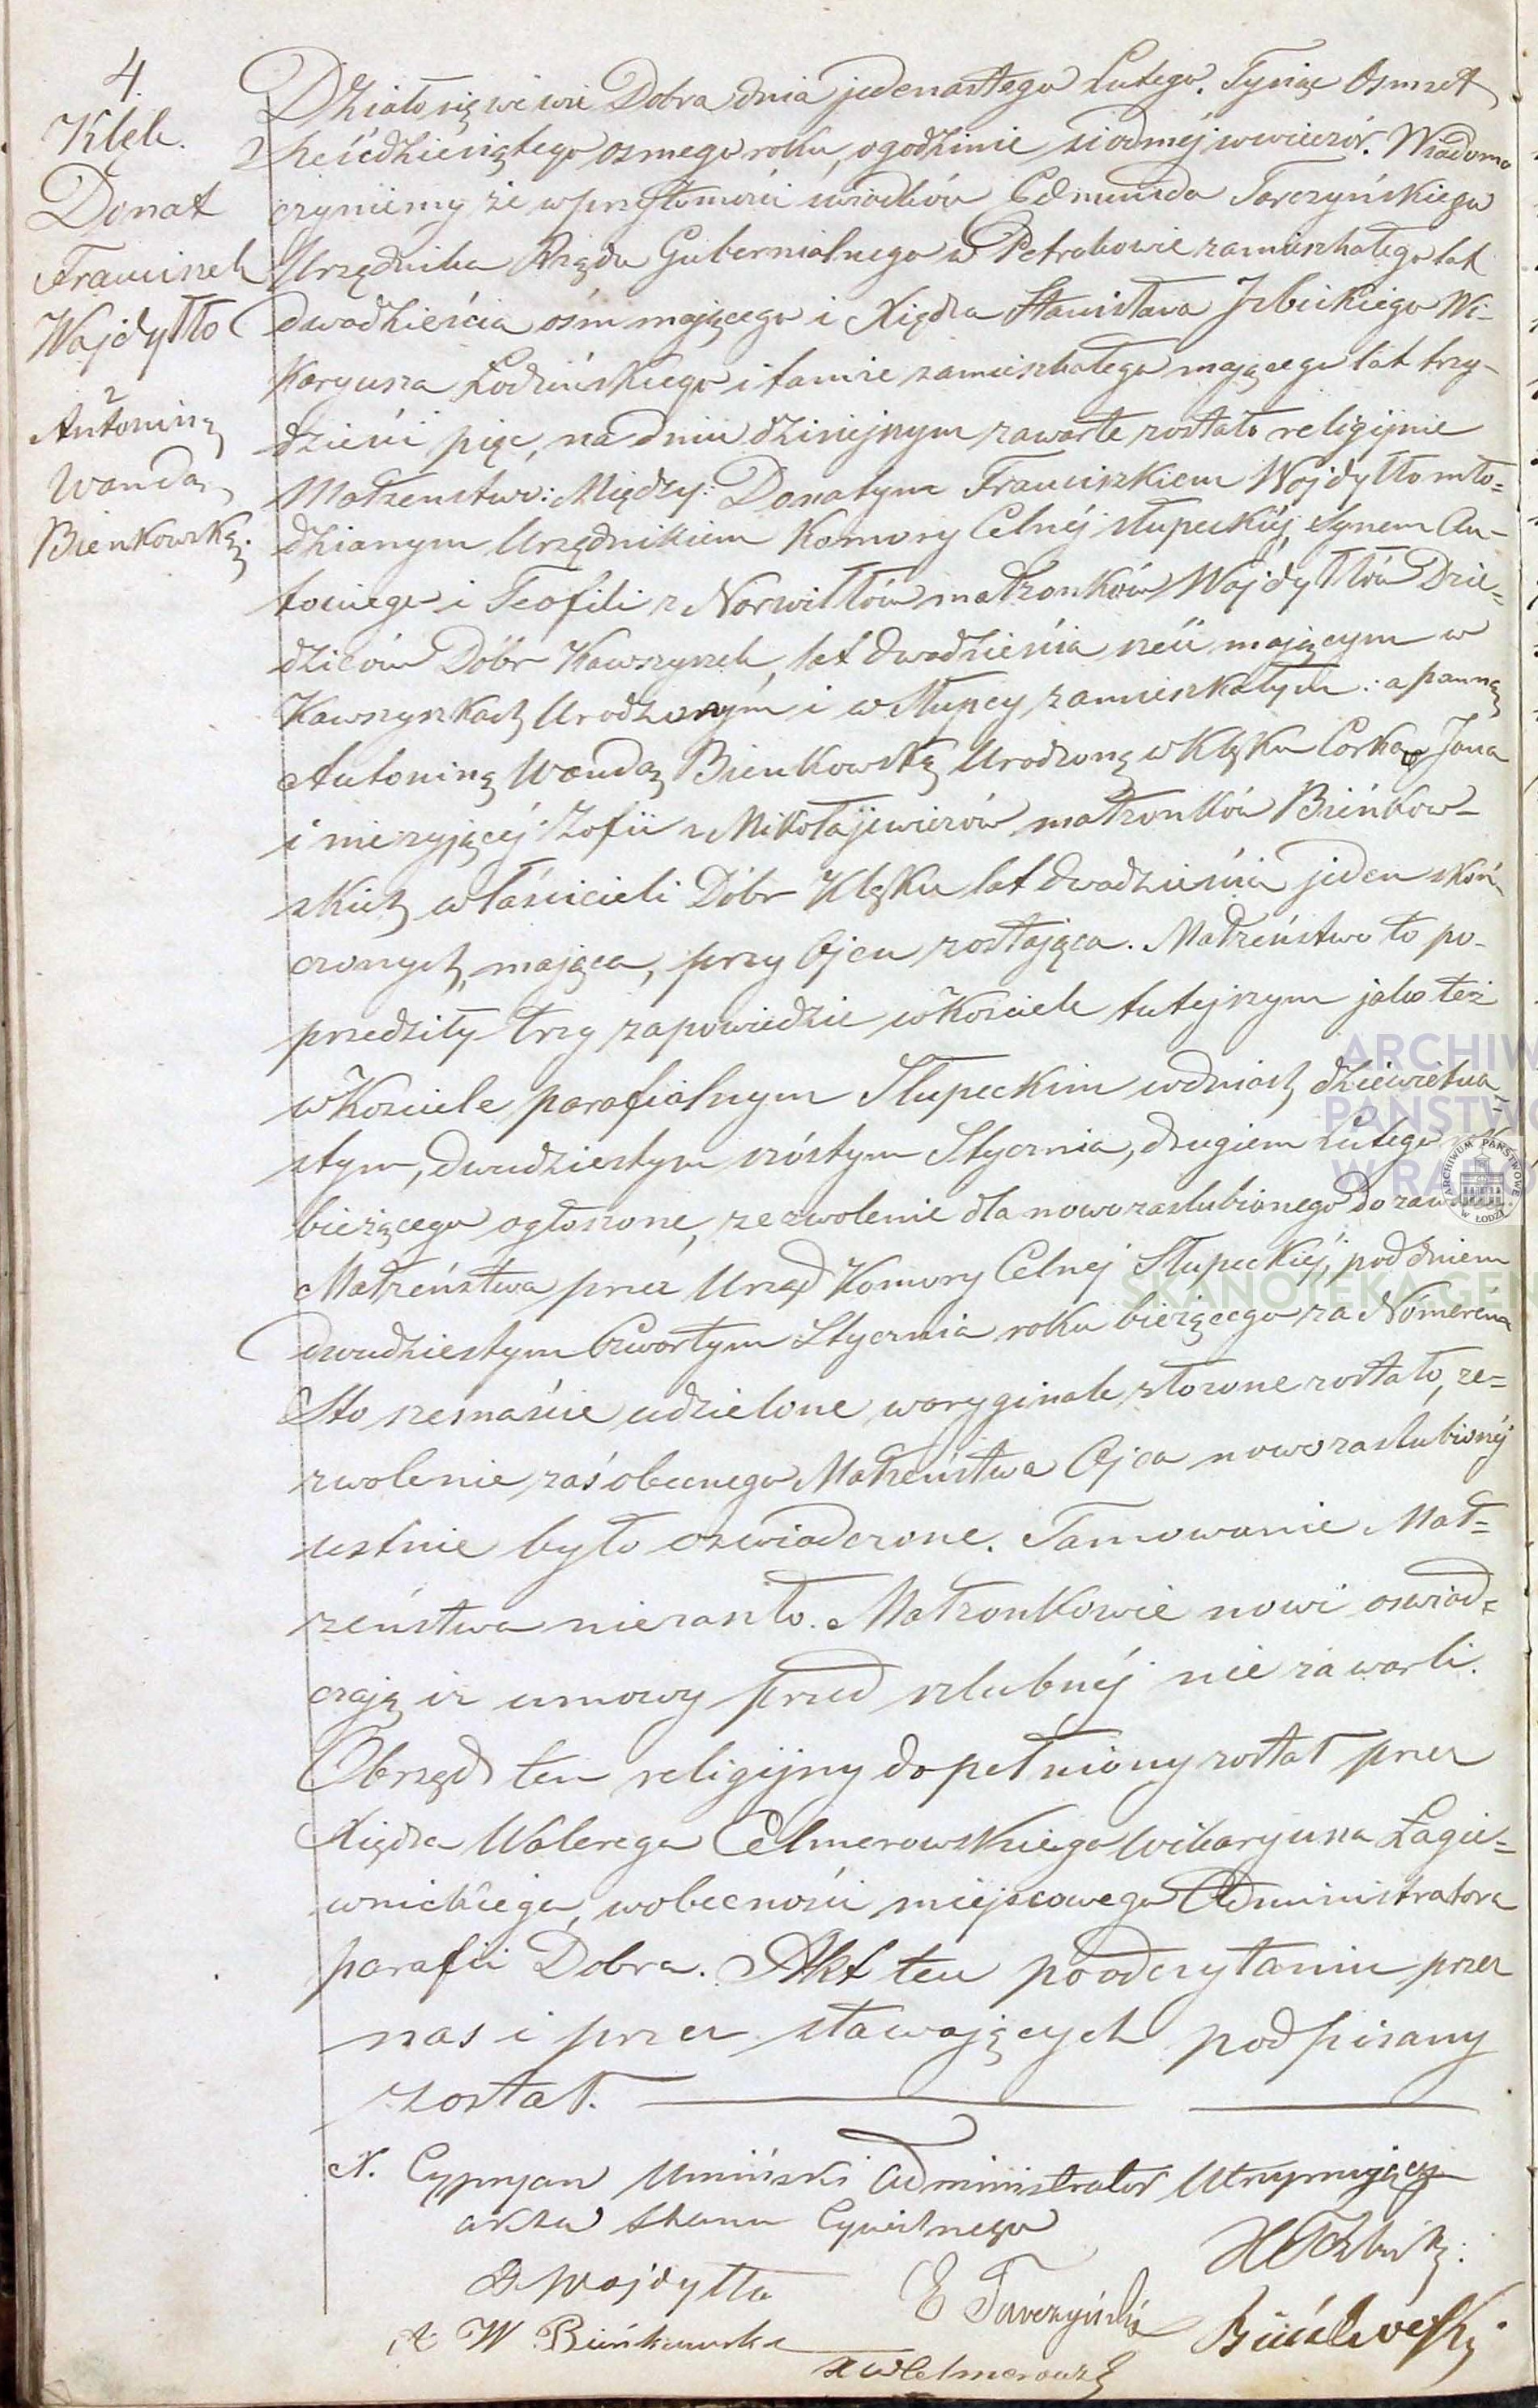 4.
Klęk.
Donat
Franciszek
Wajdyłło
z
Antoniną
Wandą
Bienkowską.
Działo się we wsi Dobra dnia jedenastego Lutego. Tysiąc Osmset
sześćdziesiątego osmego roku, o godzinie siodmej wwieczór. Wiadomo
czyniemy że w przytomności swiadków Edmunda Tarczyńskiego
Urzędnika Rządu Gubernialnego w Petrokowie zamieszkałego lat
dwadzieścia ośm mającego i Xiędza Stanisława Izbickiego Wi-
karyusza Łodzińskiego i tamże zamieszkałego mającego lat trzy-
dzieści pięc, na dniu dzisiejnym zawarte zostało religijnie
Małżenstwo: Między: Donatym Franciszkiem Wojdyłło mło=
dzianym Urzędnikiem Komory Celnéj słupeckiéj, Synem An-
toniego i Teofili z Norwiłłów małżonków Wojdyłłów Dzie=
dziców Dóbr Kawszyszek, lat dwadzieścia sześć mającym w
Kawszyszkach Urodzonym i w Słupcy zamieszkałym: a panną
Antoniną Wandą Bienkowską Urodzoną w Klęku Corką Jana
i nieżyjącéj Zofii z Mikołajewiczów małżonków Bieńkow-
skich właścicieli Dóbr Klęku lat dwadzieścia jeden skoń-
czonych, mająca, przy Ojcu zostająca. Małżeństwo to po-
przedziły trzy zapowiedzie w Kosciele tutejszym jako też
w Kosciele parafialnym Słupeckim w dniach dziewietna-
stym, dwudziestym szóstym Stycznia, drugiem Lutego
bieżącego ogłoszone, zezwolenie dla nowozaslubionego do
Małżeństwa przez Urząd Komory Celnej Słupeckiéj, pod dniem
dwudziestym Czwartym Stycznia roku bieżącego za Nómerem
Sto szesnaście udzielone w oryginale złożone zostało, ze=
zwolenie zaś obecnego Małżeństwa Ojca nowozaslubionéj
ustnie było oswiadczone. Tamowanie Mał=
żeństwa niezaszło. Małżonkowie nowi oswiad=
czają iz umowy przed szlubnéj nie zawarli.
Obrzęd ten religijny dopełniony został przez
Xiędza Walerego Celmerowskiego Wikaryusza Łagie=
wnickiego, w obecności miejscowego Administratora
parafii Dobra. Akt ten po odczytaniu przez
nas i przez stawających podpisany
został.
X. Cypryan Umiński Administrator Utrzymujący
akta Stanu Cywilnego
D. Wojdyłło
E Tarczyński
A W Bieńkowska
Bieńkowski
X W Celmerowski
ARCHIW
PAŃSTWO
SKANOTEKA GEN
ARCHIWUM PAŃSTWOWE W ŁODZI